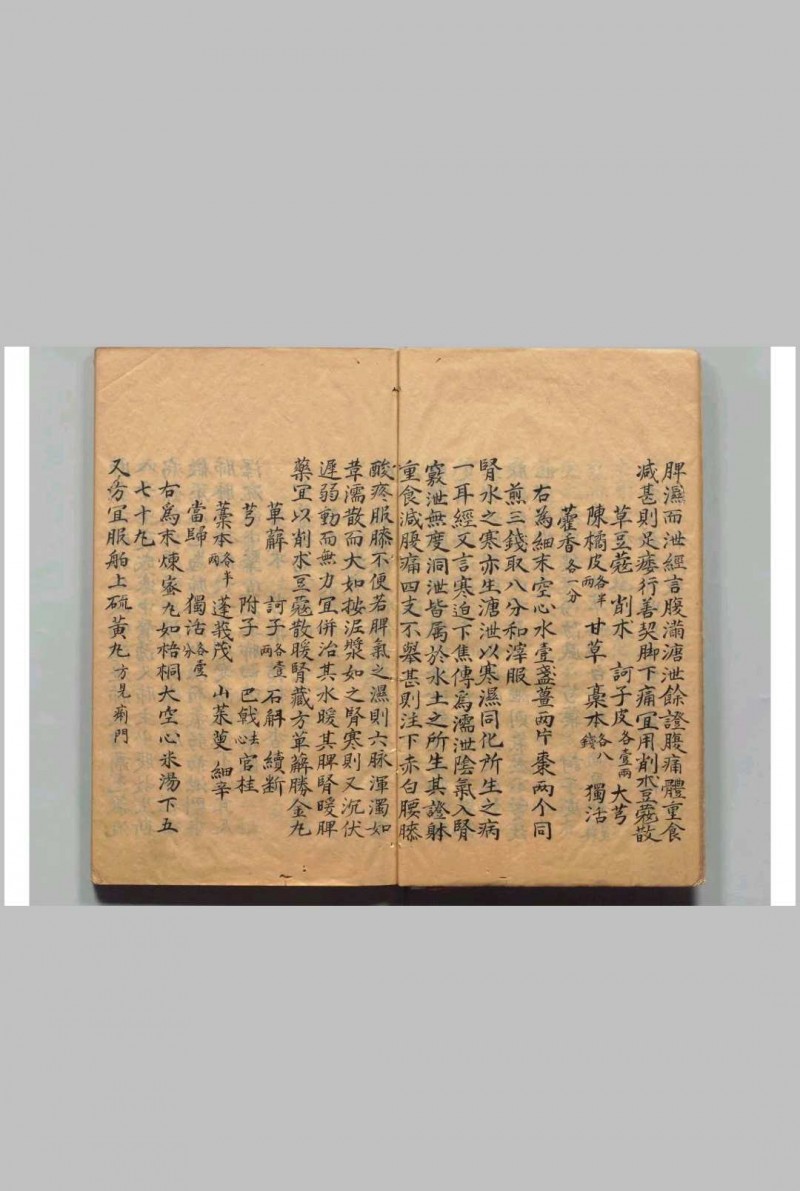 脾濕而泄經言腹滿溏泄餘證腹痛體重食
減甚則足痿行善契脚下痛宜用削朮豆蔻散
草豆蔻 削朮 訶子皮各壹兩 大芎
陳橘皮各半兩 甘草 藁本各八錢 獨活
藿香各一分
右為細末空心水壹盞薑兩片棗兩个同
煎三錢取八分和滓服
腎水之寒亦生溏泄以寒濕同化所生之病
一耳經又言寒迫下焦傳為濡泄陰氣入腎
竅泄無度洞泄皆属於水土之所生其證躰
重食減腹痛四支不舉甚則注下赤白腰膝
酸疼服膝不便若脾氣之濕則六脉渾濁如
葦濡散而大如按泥漿如之腎寒則又沉伏
遲弱動而無力宜併治其水暖其脾腎暖脾
藥宜以削朮豆蔻散暖腎藏方萆薢勝金丸
萆薢 訶子各壹兩 石斛 續断
芎 附子 巴戟去心 官桂
藁本各半兩 蓬莪茂 山茱萸 細辛
當歸 獨活各壹分
右為末煉蜜丸如梧桐大空心米湯下五
七十丸
又方宜服舶上硫黃丸方見前門